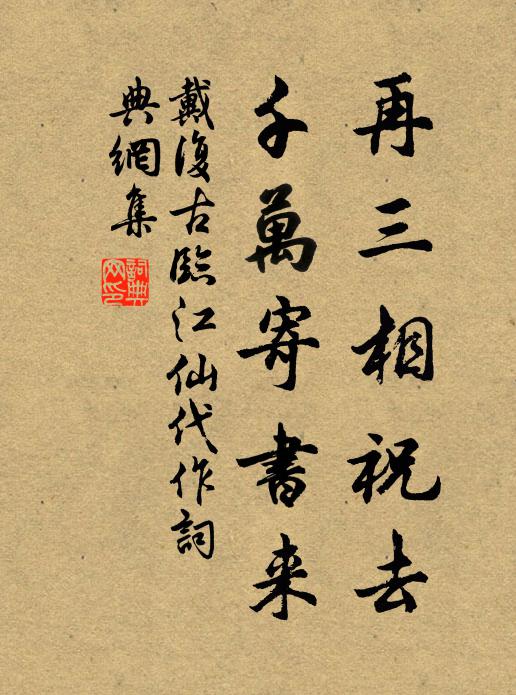 再三相祝去
千萬寄書来
戴復古臨江仙代作詞
典網集
詞典
网印